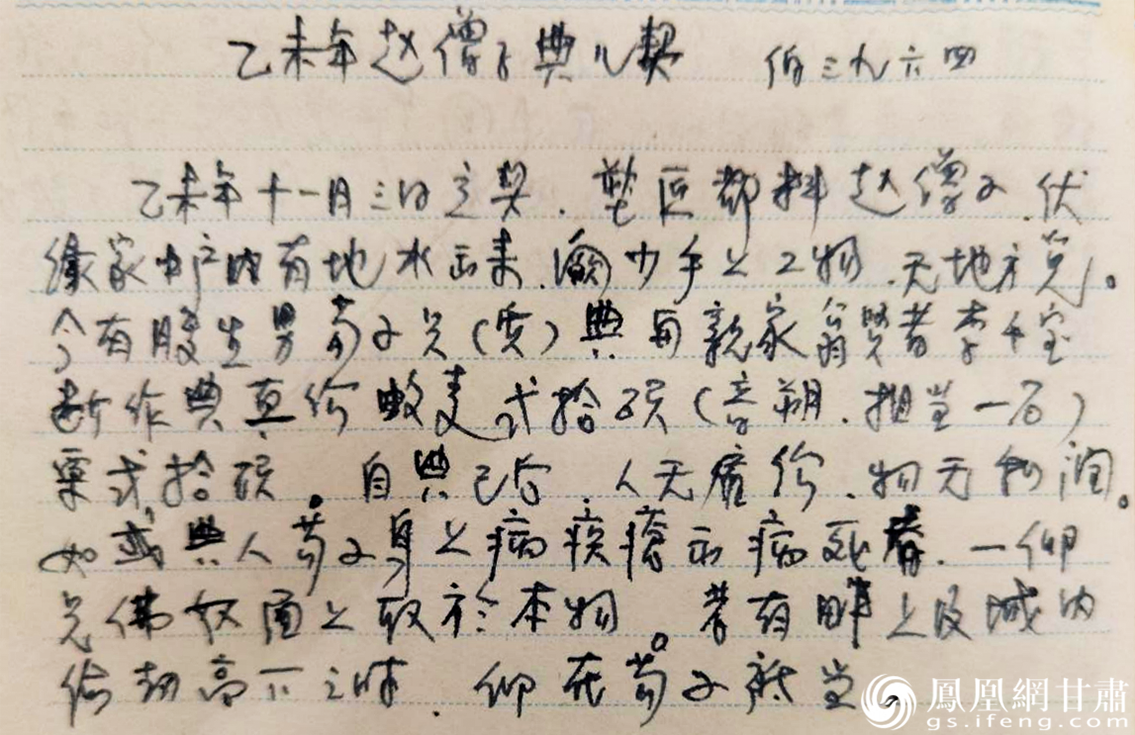 乙未年赵僧子典儿契 伯三九六四
乙未年十一月三日立契.塑匠都料赵僧子.伏
缘家中户内有地水出来.阙少手上工物.无地方觅。
今有腹生男苟子只(质)典与亲家翁贤者李千定
断作典直价数麦弍拾硕(音朔.担当一石)
粟弍拾硕。自典已后.人无雇价.物无利润。
如或典人苟子身上病疾疮出病死者.一仰
兄佛奴面上取於本物。若有畔上及城内
偷劫高下之时.仰在苟子祗当。
鳳凰網甘肅
gs.ifeng.com